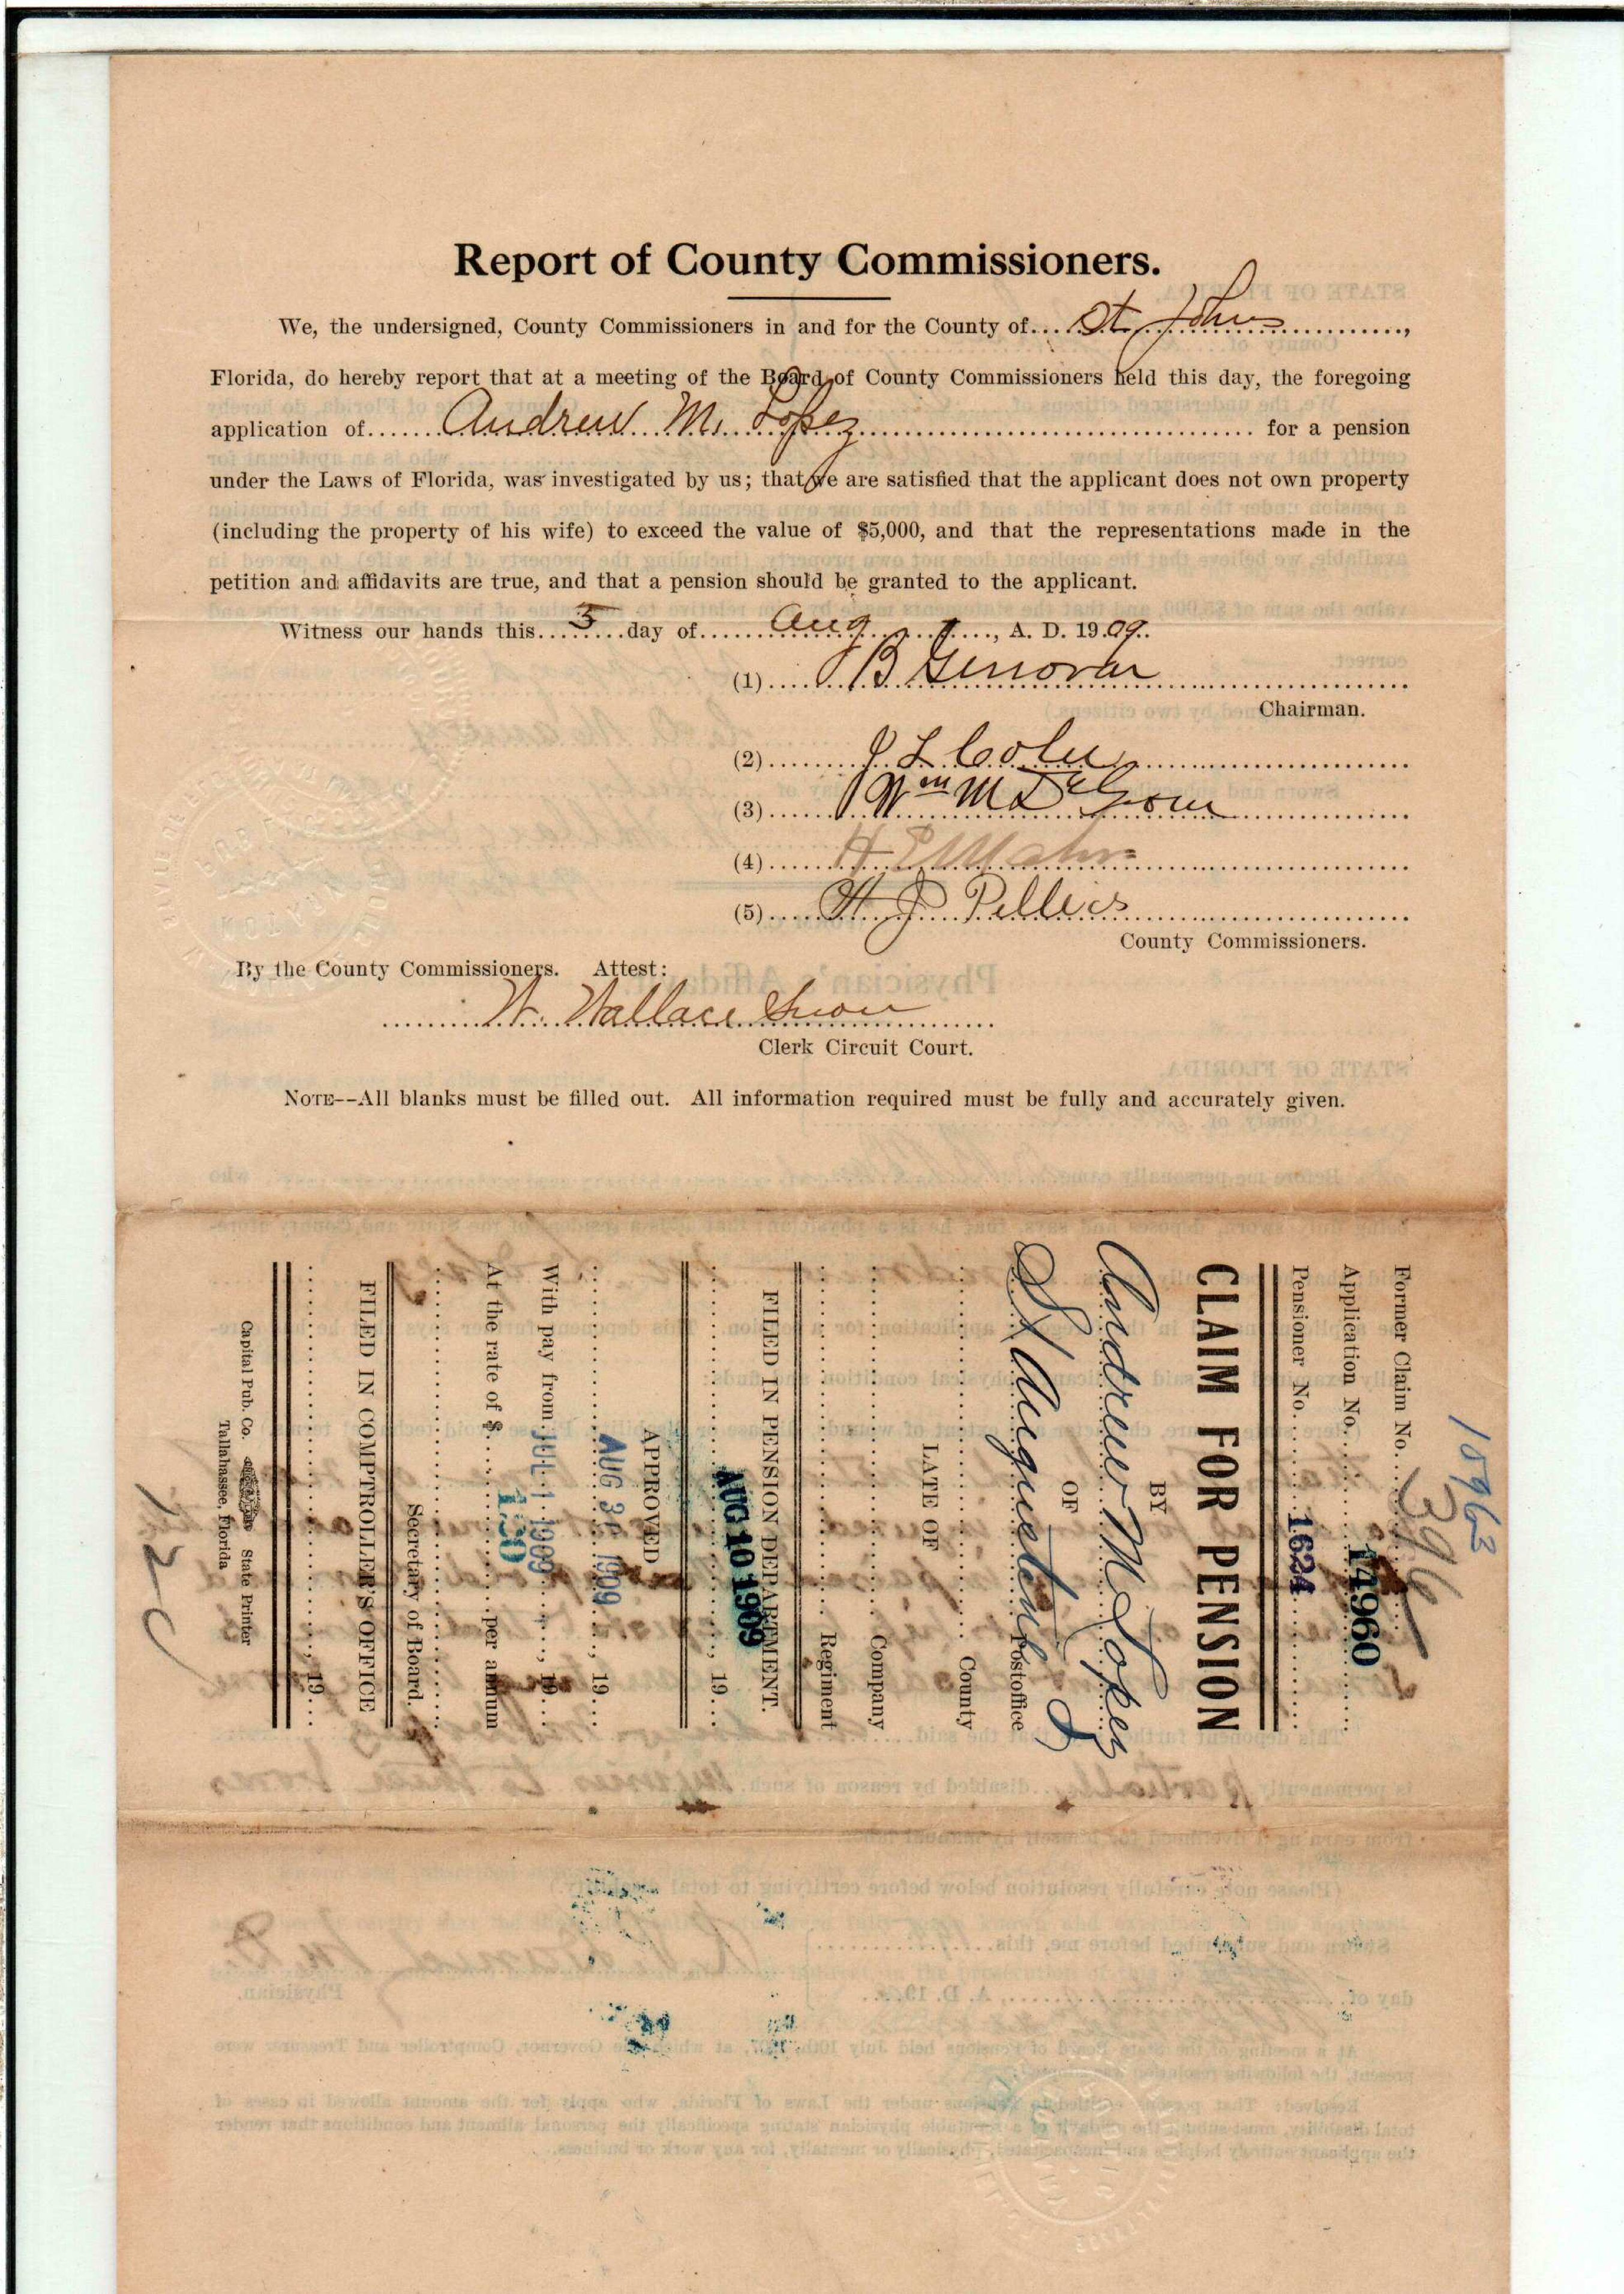 Report of County Commissioners.
We, the undersigned, County Commissioners in and for the County of....St. Johns....,
Florida, do hereby report that at a meeting of the Board of County Commissioners held this day, the foregoing
application of......Andrew M. Lopez...... for a pension
under the Laws of Florida, was investigated by us; that we are satisfied that the applicant does not own property
(including the property of his wife) to exceed the value of $5,000, and that the representations made in the
petition and affidavits are true, and that a pension should be granted to the applicant.
Witness our hands this....3....day of......Aug......, A. D. 1909..
(1)....B Genovar
Chairman.
(2)
(3)....Wm M DeGrove
(4)....H E
(5)....H J Pellicer
County Commissioners.
By the County Commissioners. Attest:
W. Wallace Snow
Clerk Circuit Court.
NOTE--All blanks must be filled out. All information required must be fully and accurately given.
15963
Former Claim No....396
Application No....14960
Pensioner No....1624
CLAIM FOR PENSION
BY
Andrew M Lopez
OF
St Augustine Postoffice
County
LATE OF
Company
Regiment
FILED IN PENSION DEPARTMENT.
AUG 10 1909, 19...
APPROVED
AUG 24 1909, 19...
With pay from JUL 1 1909, 19...
At the rate of $ 150 per annum
Secretary of Board.
FILED IN COMPTROLLER'S OFFICE
, 19...
Capital Pub. Co. State Printer
Tallahassee, Florida